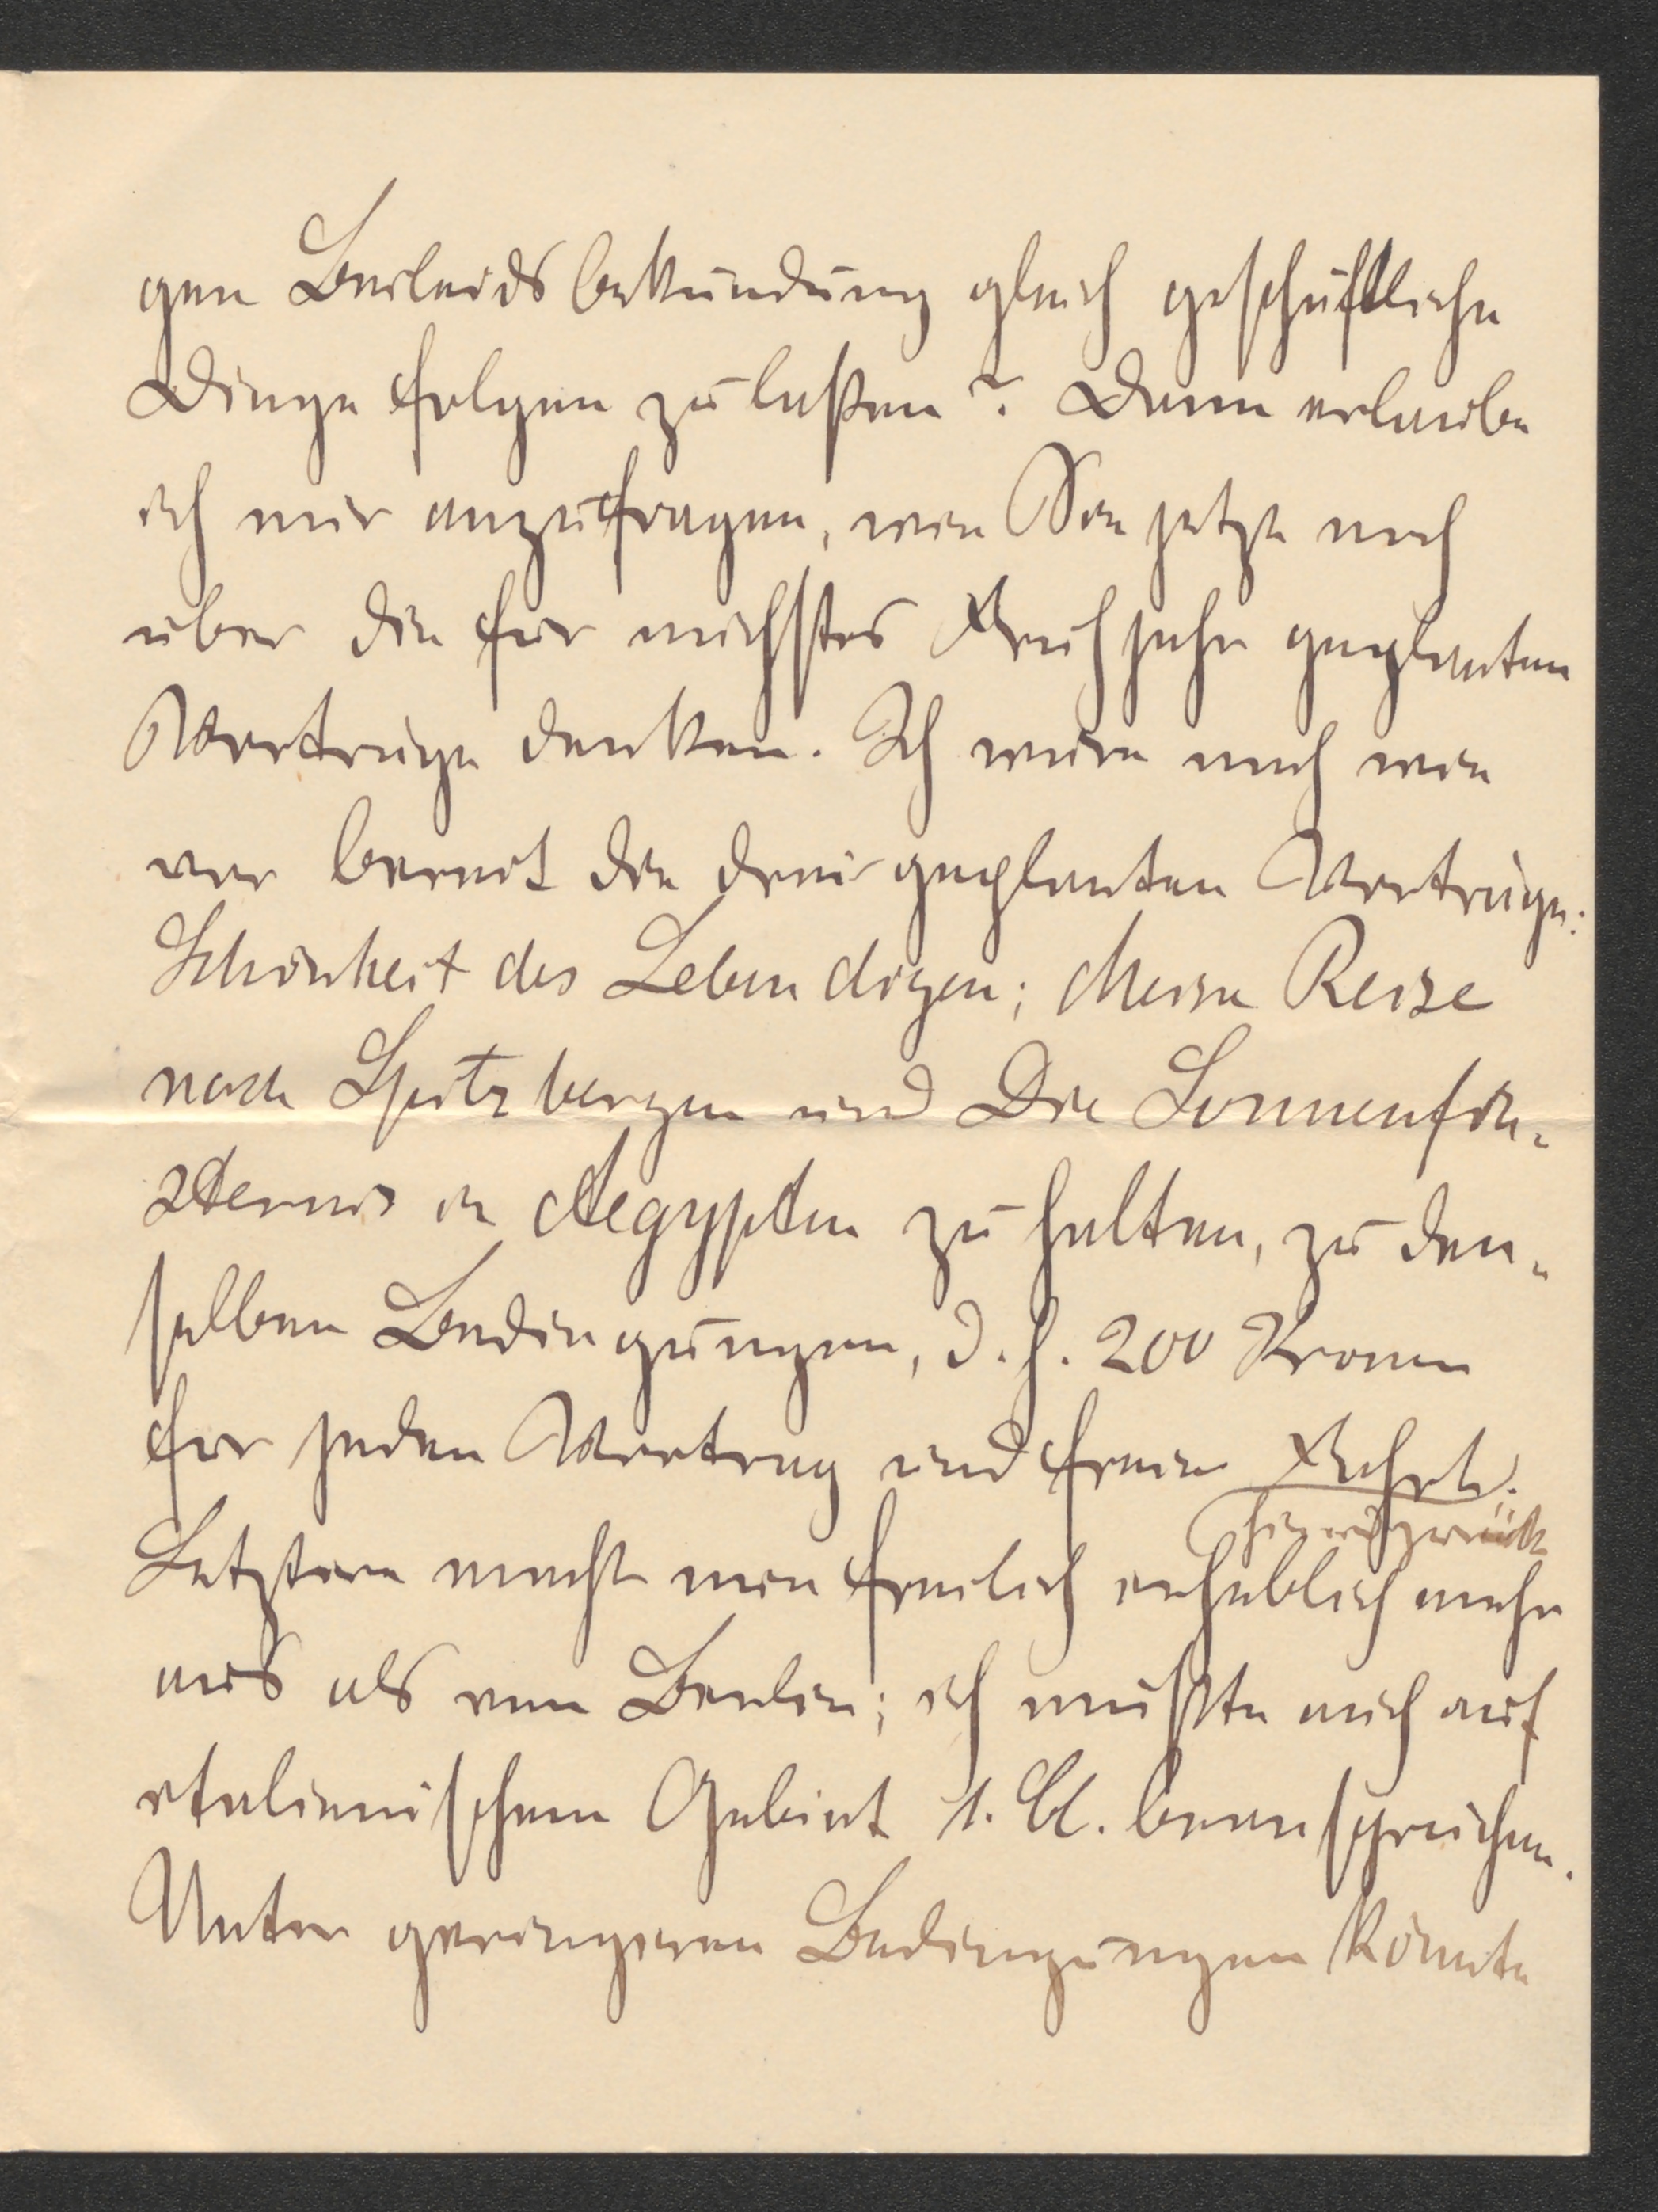 gen Beileidsbekundung gleich geschäftliche
Dinge folgen zu laßen? Dann erlaube
ich mir anzufragen, wie Sie jetzt noch
über die für nächstes Frühjahr geplanten
Vorträge denken. Ich wäre nach wie
vor bereit die drei geplanten Vorträge:
Schönheit des Lebendigen; Meine Reise
nach Spitzbergen und Die Sonnenfin-
sternis in Aegypten zu halten, zu den-
selben Bedingungen, d. h. 200 Kronen
für jeden Vortrag und freie Fahrt.
hin und zurück
Letztere macht nun freilich erheblich mehr
aus als von Berlin; ich müßte auch auf
italienischem Gebiet 1. Cl. beanspruchen.
Unter geringeren Bedingungen könnte